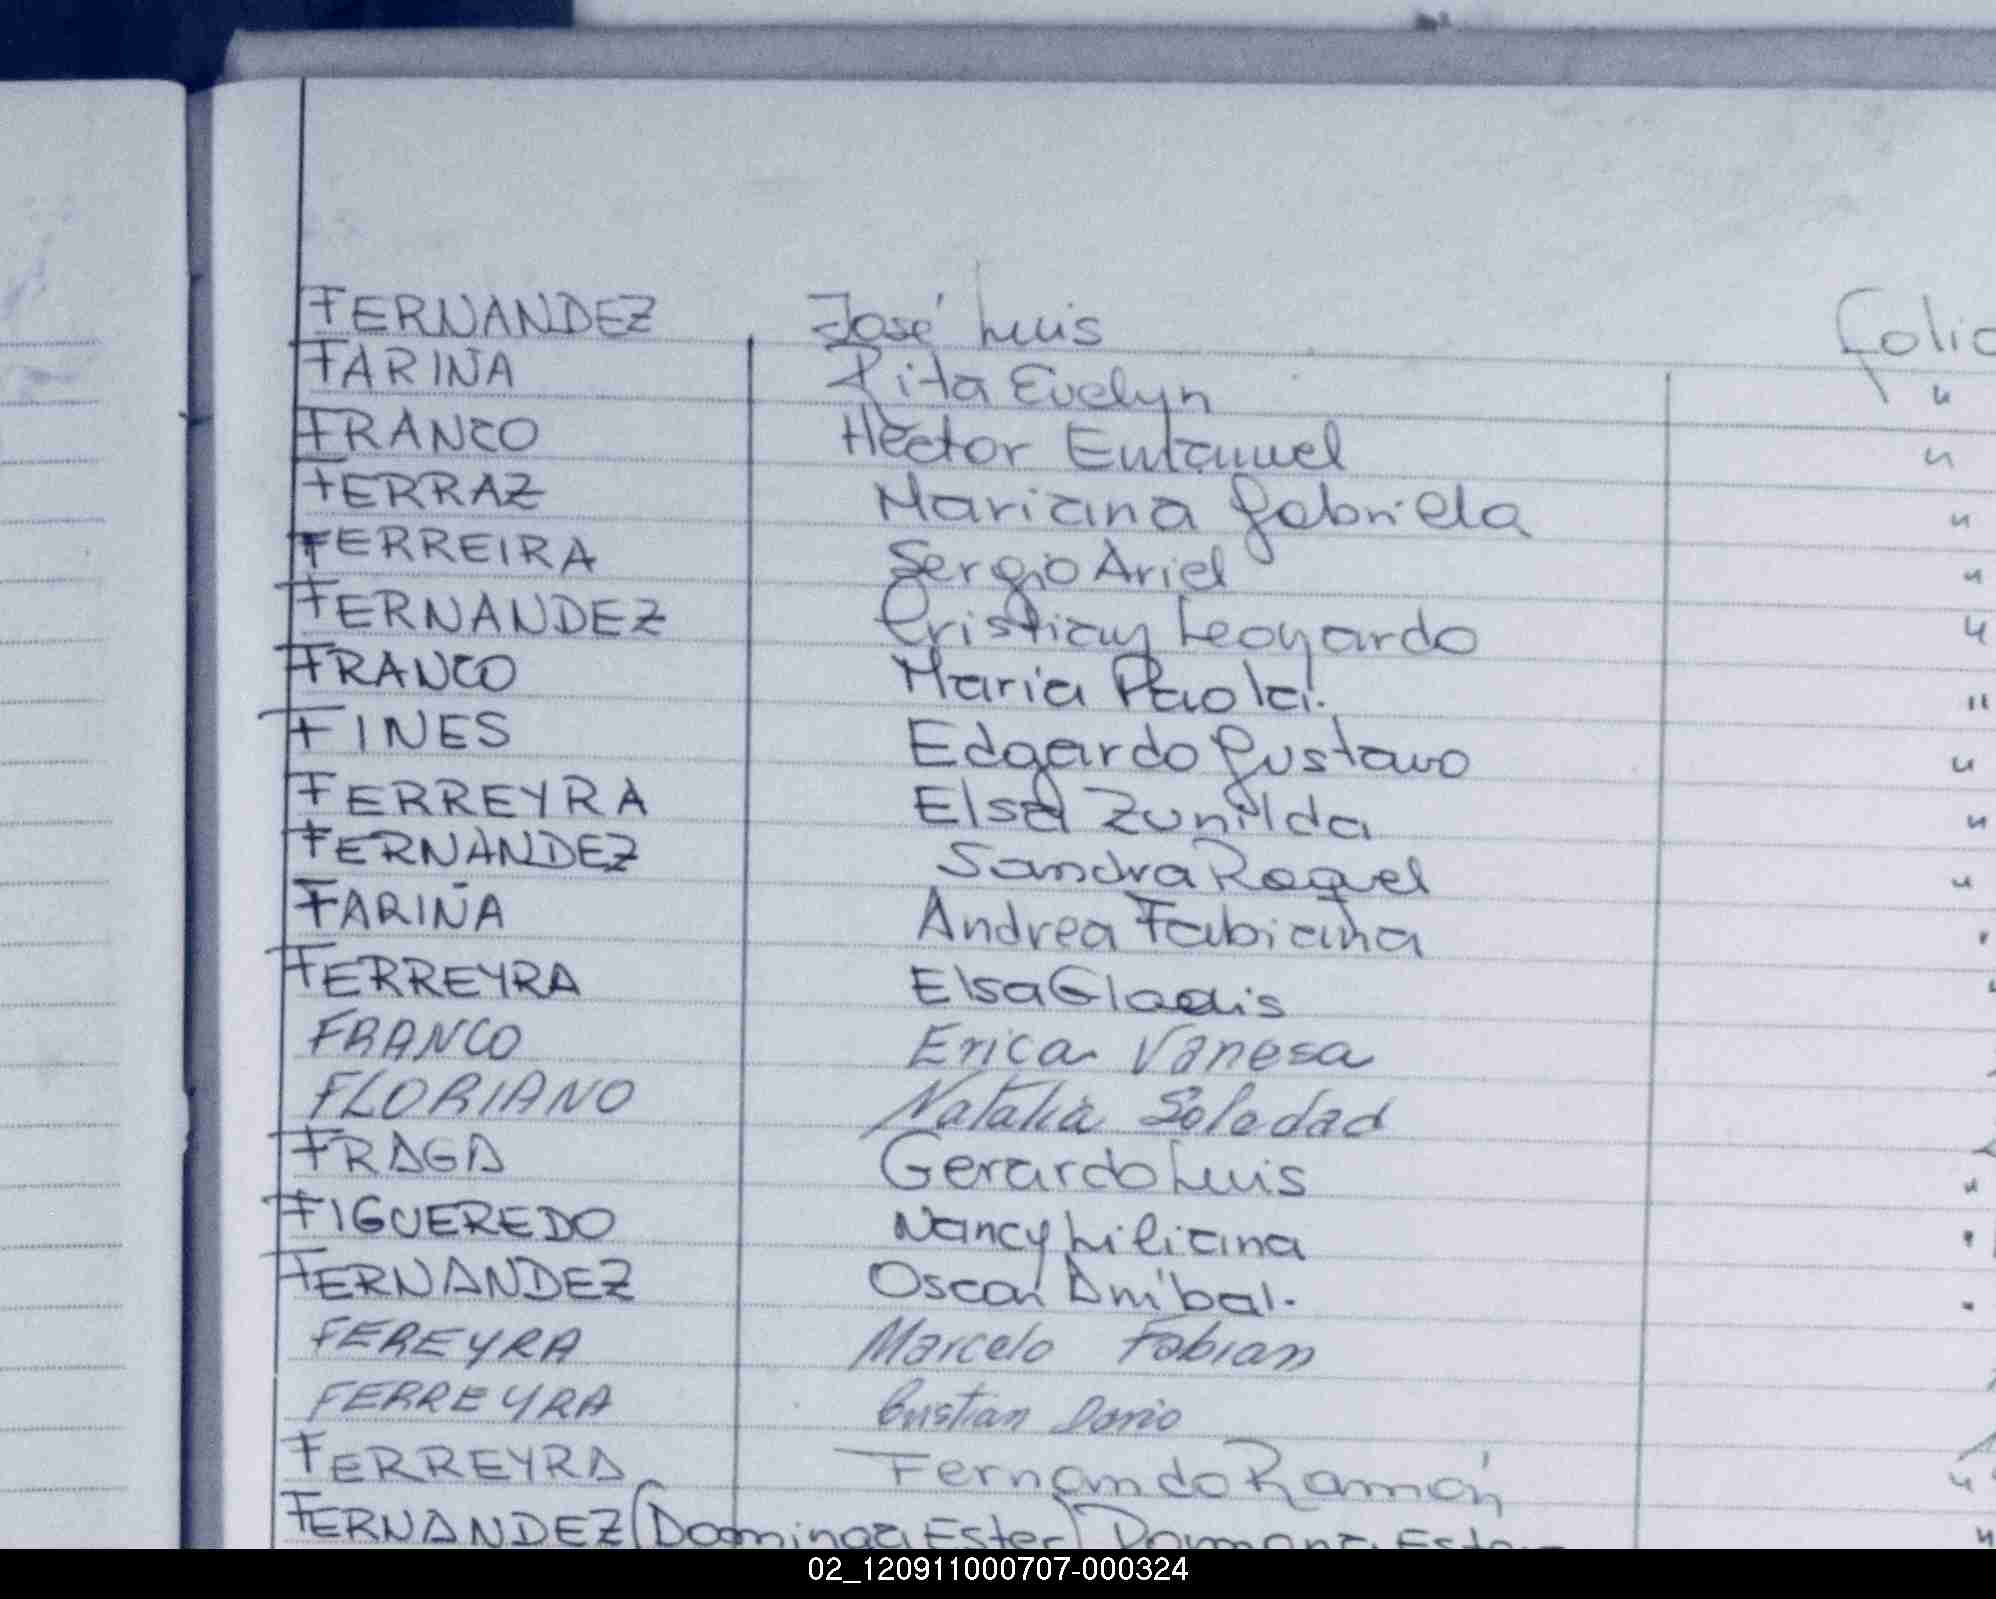 FERNANDEZ José Luis Folio
FARIÑA Rita Evelyn "
FRANCO Héctor Emanuel "
FERRAZ Mariana Gabriela "
FERREIRA Sergio Ariel "
FERNANDEZ Cristian Leonardo "
FRANCO Maria Paola. "
FINES Edgardo Gustavo "
FERREYRA Elsa Zunilda "
FERNANDEZ Sandra Raquel "
FARIÑA Andrea Fabiana
FERREYRA Elsa Gladis
FRANCO Erica Vanesa
FLORIANO Natalia Soledad
FRAGA Gerardo Luis "
FIGUEREDO Nancy Liliana
FERNANDEZ Oscar Anibal.
FEREYRA Marcelo Fabian
FERREYRA Cristian Dario
FERREYRA Fernando Ramón "
FERNANDEZ (Dominga Ester) "
02_120911000707-000324